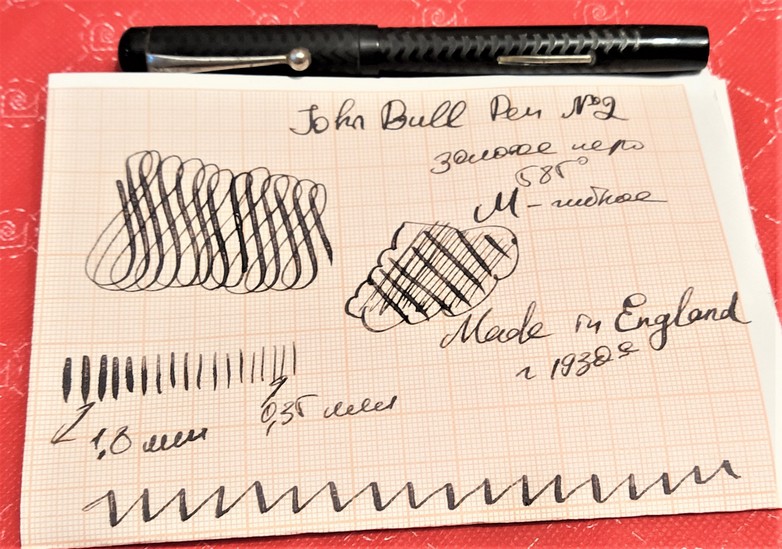 John Bull Pen №2
золотое перо
585°
M - гибкое
Made in England
~ 1930е
0,35 мм
1,8 мм